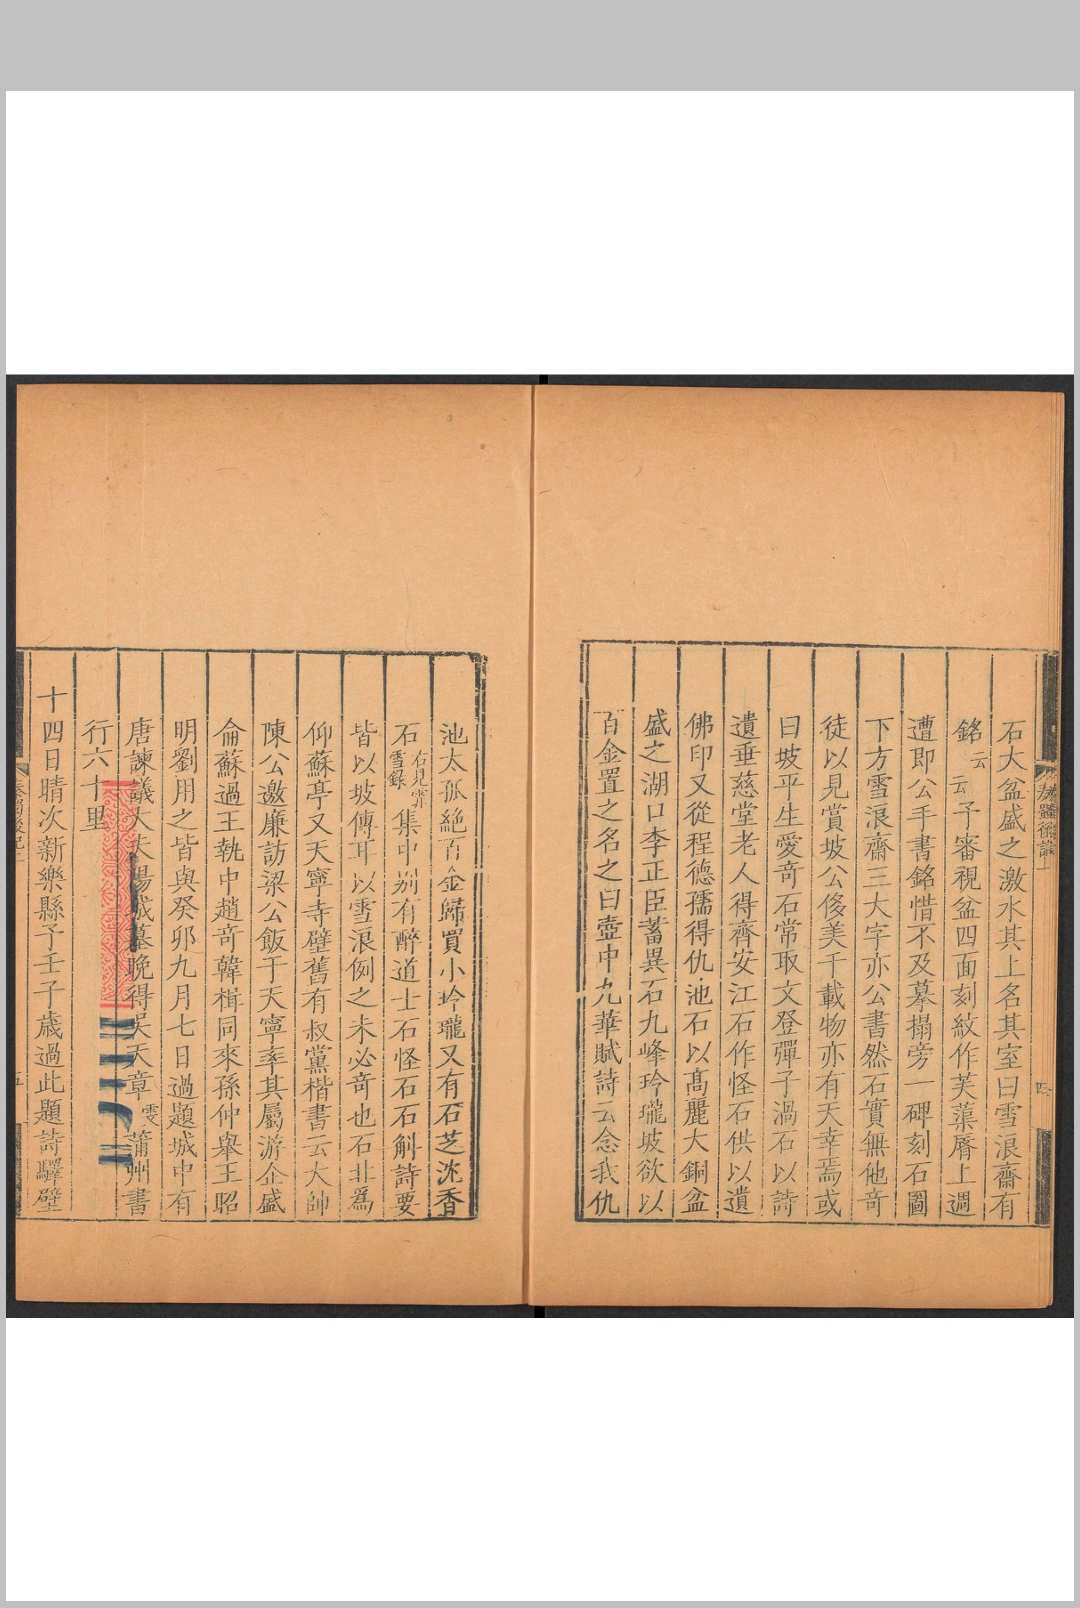 石大盆盛之激水其上名其室曰雪浪齋有
銘云云予審視盆四面刻紋作芙蕖脣上週
遭即公手書銘惜不及摹搨旁一碑刻石圖
下方雪浪齋三大字亦公書然石實無他奇
徒以見賞坡公侈美千載物亦有天幸焉或
曰坡平生愛奇石常取文登彈子渦石以詩
遺垂慈堂老人得齊安江石作怪石供以遺
佛印又從程德孺得仇池石以高麗大銅盆
盛之湖口李正臣蓄異石九峰玲瓏坡欲以
百金置之名之曰壺中九華賦詩云念我仇
池太孤絕百金歸買小玲瓏又有石芝沈香
石右見雲雪錄集中別有醉道士石怪石石斛詩要
皆以坡傳耳以雪浪例之未必奇也石非爲
仰蘇亭又天寧寺壁舊有叔黨楷書云大帥
陳公邀廉訪梁公飯于天寧率其屬游企盛
侖蘇過王執中趙奇韓楫同來孫仲舉王昭
明劉用之皆與癸卯九月七日過題城中有
唐諫議大夫陽城墓晚得吳天章雯蒲州書
行六十里
十四日晴次新樂縣予壬子歲過此題詩驛壁